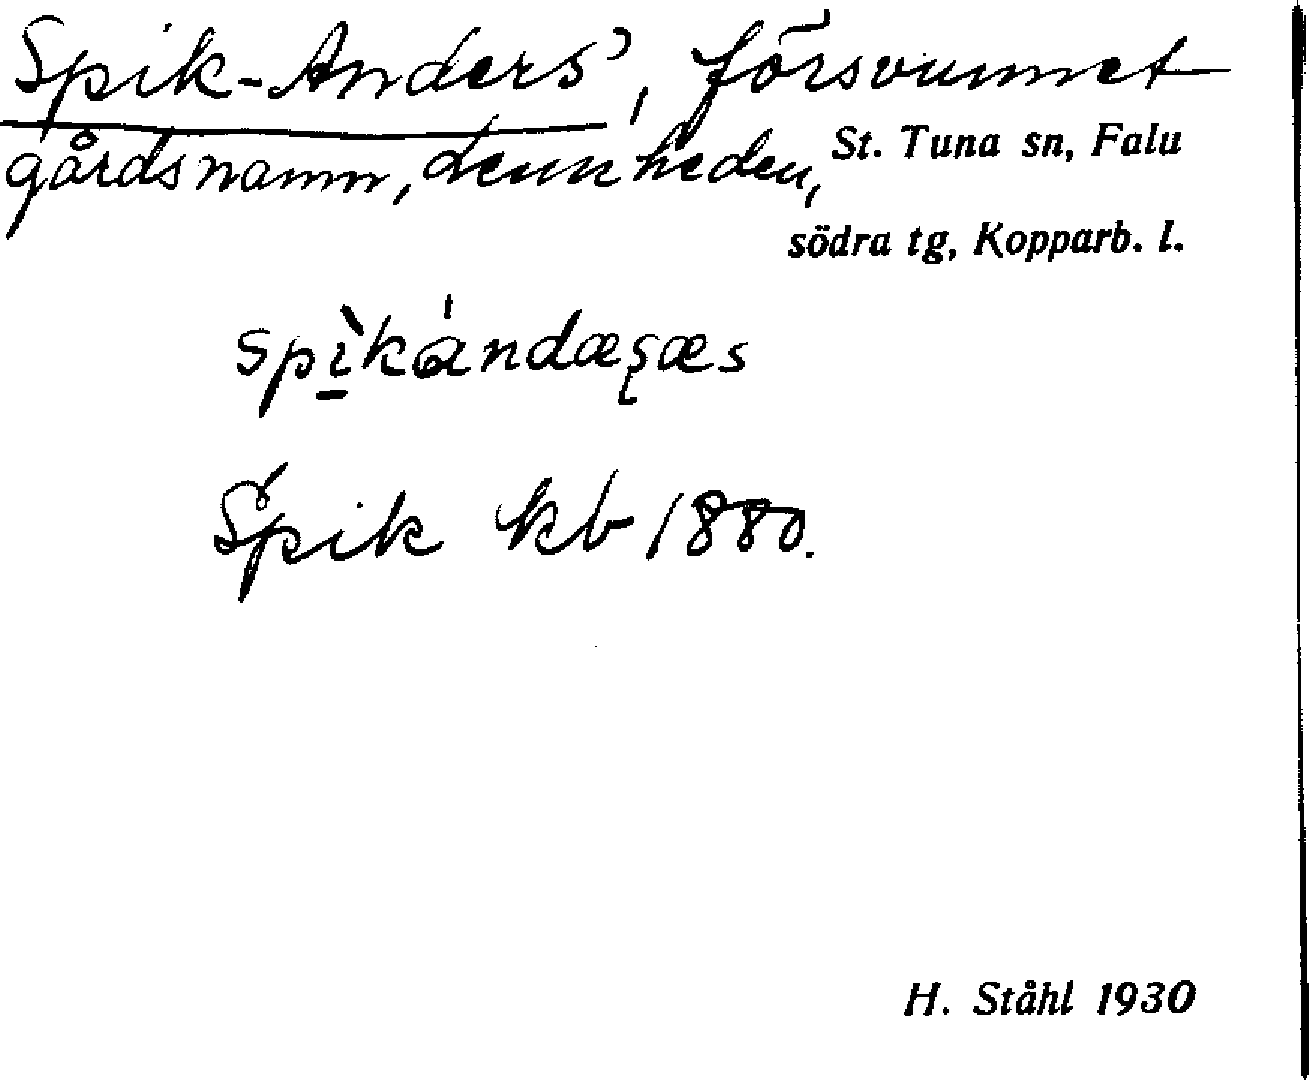 Spik-Anders', försvunnet
gårdsnamn, Lennheden, St. Tuna sn, Falu
södra tg, Kopparb. l.
spìkándæșæs
Spik kb 1880.
H. Ståhl 1930